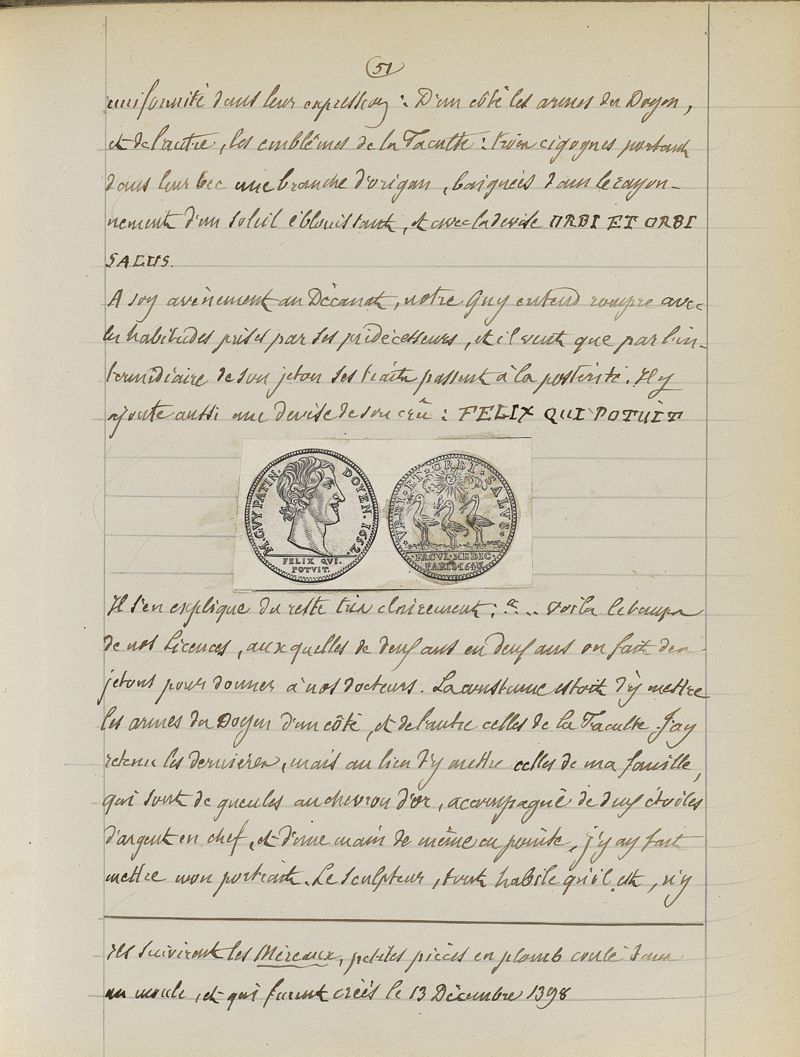 51
uniformité dans leur expression : D'un côté les armes du Doyen,
et de l'autre, les emblêmes de la Faculté : trois cigognes portant
dans leur bec une branche d'origan, baignées dans le rayon-
nement d'un soleil éblouissant, et avec la devise ORBI ET ORBI
SALUS.
A soy avènement au Décanat, notre Guy entend rompre avec
les habitudes prises par ses prédécesseurs, et il veut que par l'in-
termédiaire de son jeton ses traits passent à la postérité. Il y
ajoute aussi une devise de son crû : FELIX QUI POTUIT
M. GVY PATIN. DOYEN. 1652.
FELIX QUI.
POTVIT.
VRBI. ET. ORBI. SALVS.
FACVL. MEDIC.
PARIS. 1648
Il s'en explique du reste très clairement : "... voila le temps
de nos Licences, aux quelles de deux ans en deux ans on fait des
jetons pour donner à nos docteurs. La coustume estoit d'y mettre
les armes du Doyen d'un côté, et de l'autre celles de la Faculté. J'ay
retenu les dernieres, mais au lieu d'y mettre celles de ma famille,
qui sont de gueules au chevron d'or, accompagné de deux étoiles
d'argent en chef, et d'une main de même en pointe, j'y ay fait
mettre mon portrait. Le sculpteur, tout habile qu'il est, n'y
Ils suivirent les Méreaux, petites pièces en plomb coulé dans
un moule, et qui furent créés le 13 Décembre 1398